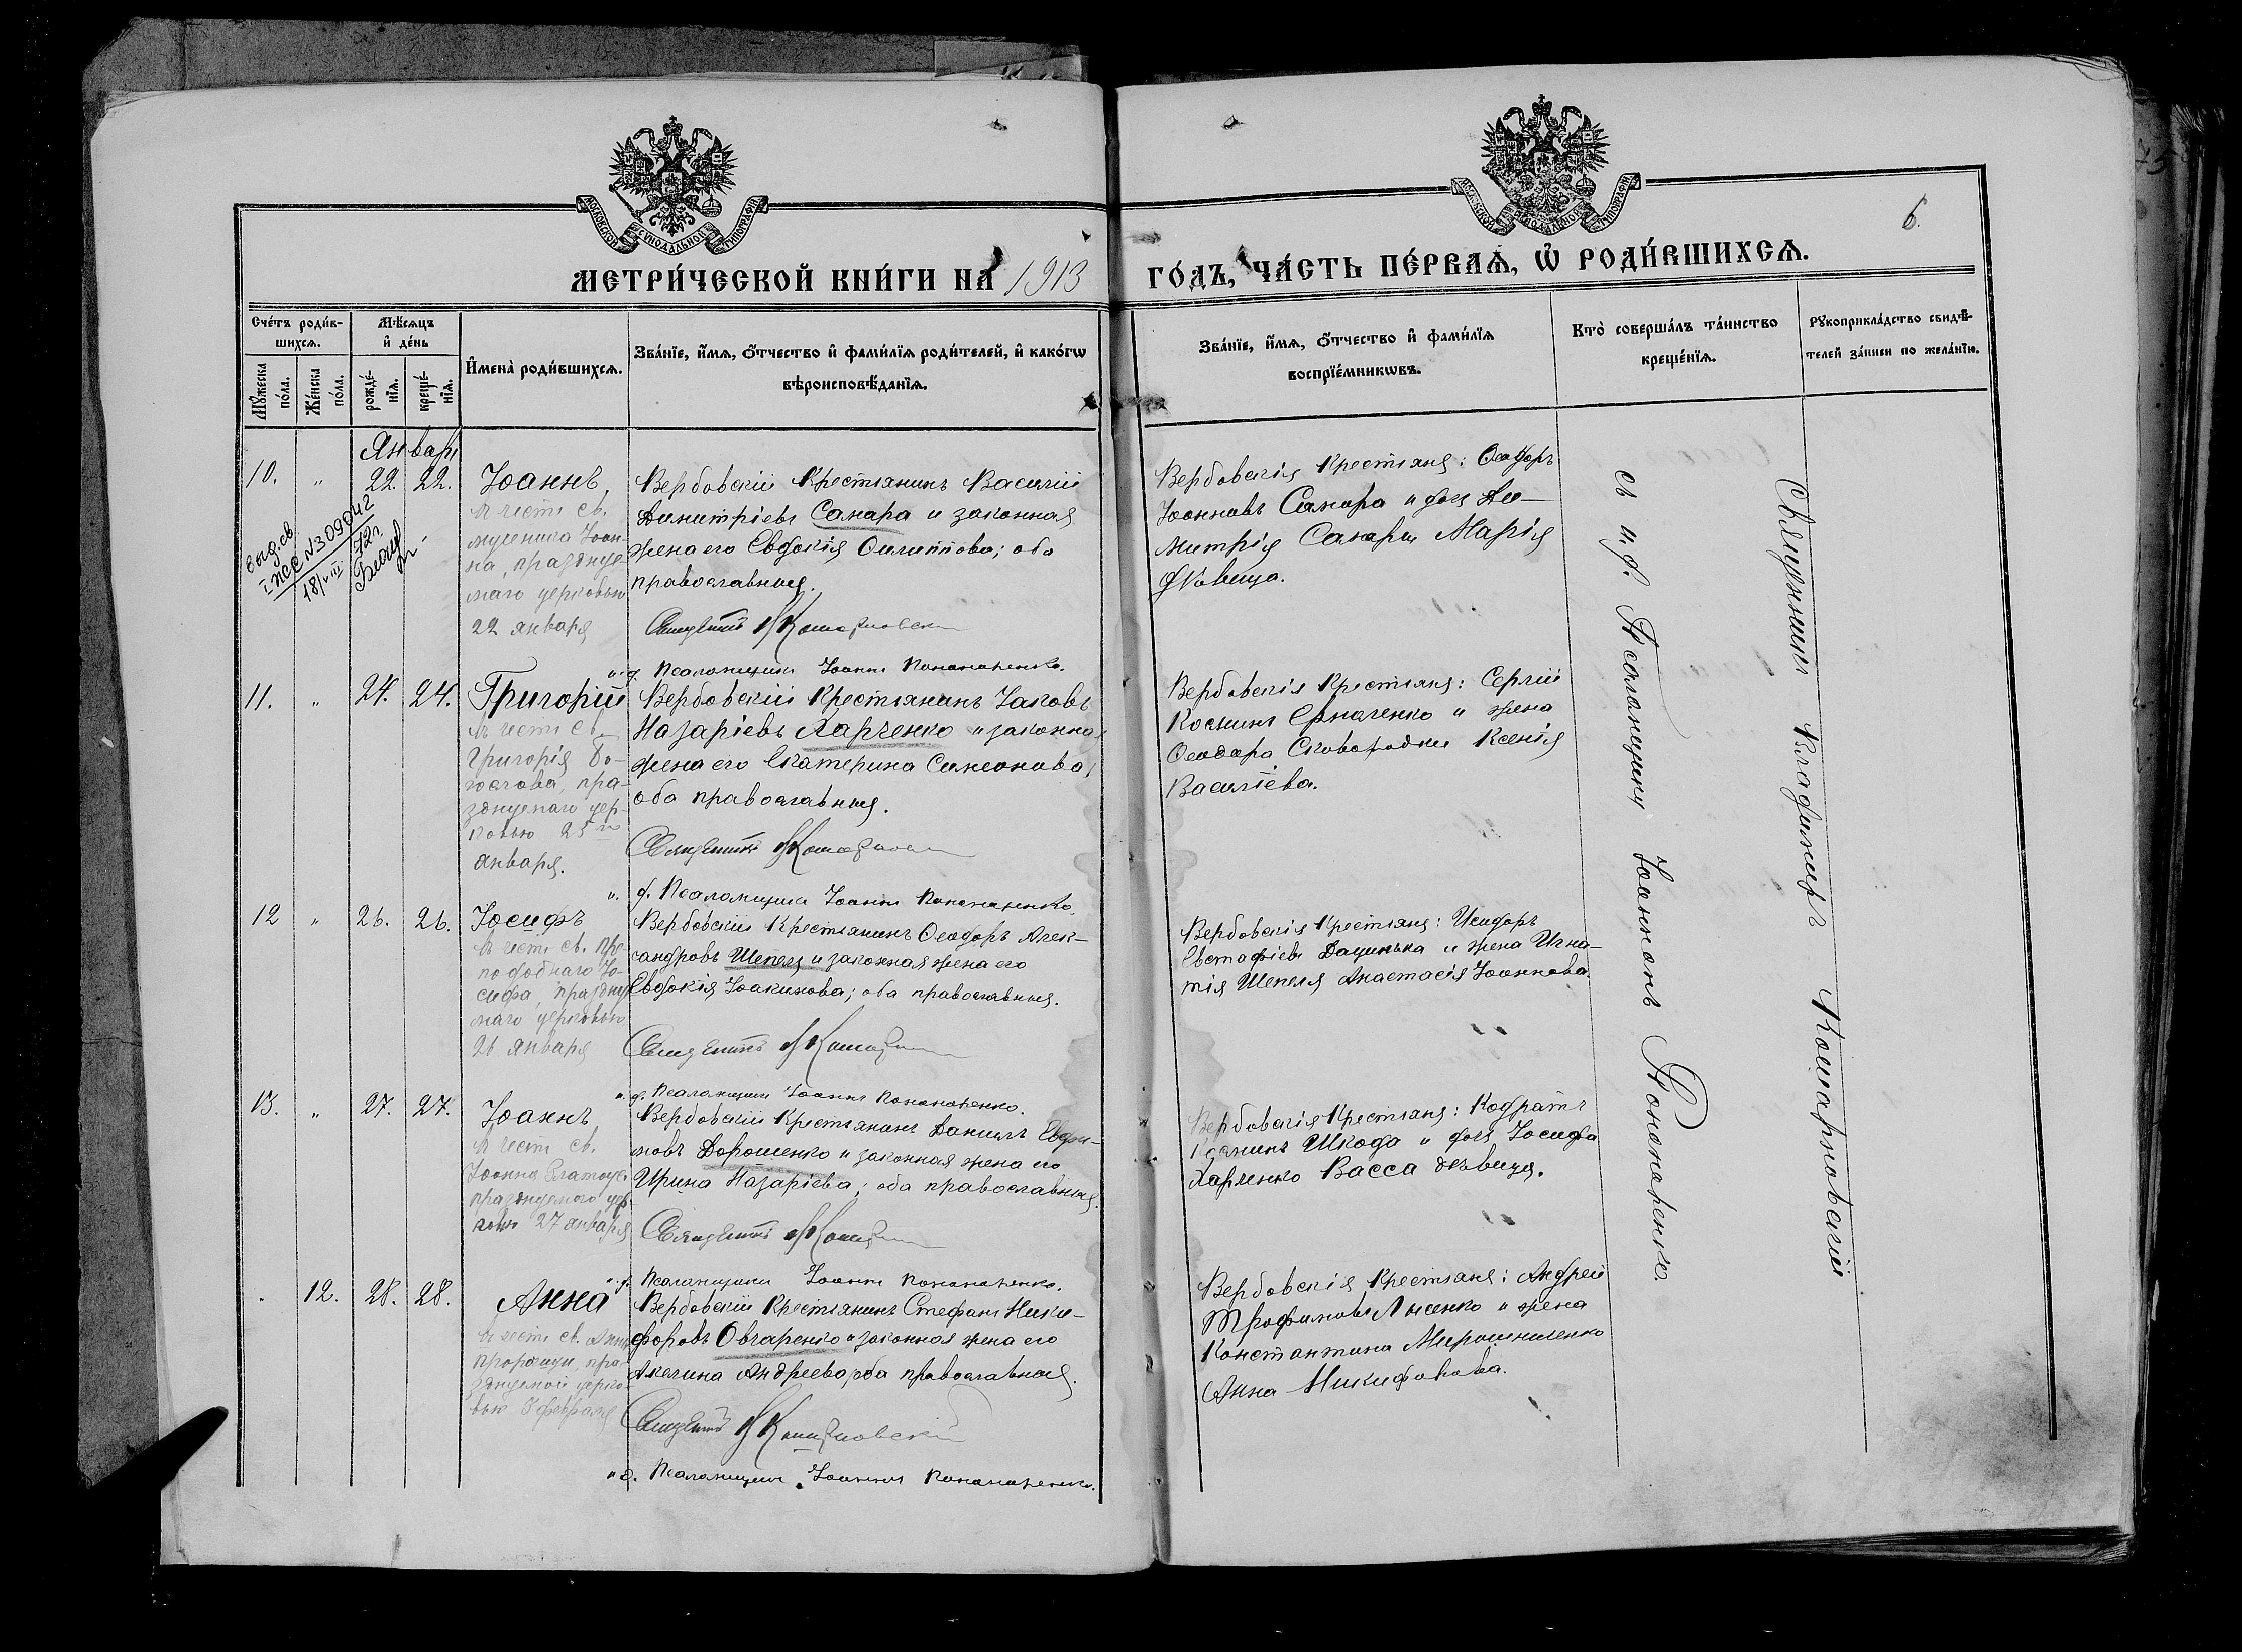 МОСКОВСКОЙ СѴНОДАЛЬНОЙ ТИПОГРАФІИ
МОСКОВСКОЙ СѴНОДАЛЬНОЙ ТИПОГРАФІИ
6.
МЕТРИ́ЧЕСКОЙ КНИ́ГИ НА 1913
ГО́ДЪ, ЧА́СТЬ ПЕ́РВАѦ, Ѡ҆ РОДИ́ВШИХСѦ.
Сче́тъ роди́в-
шихсѧ.
Мѣ́сѧцъ
и҆ де́нь
Мꙋ́жеска
по́ла.
Же́нска
по́ла.
рожде́-
нїѧ.
креще́-
нїѧ.
И҆мена̀ роди́вшихсѧ.
Зва́нїе, и҆́мѧ, ѻ҆́тчество и҆ фами́лїѧ роди́телей, и҆ како́гѡ
вѣроисповѣ́данїѧ.
Зва́нїе, и҆́мѧ, ѻ҆́тчество и҆ фами́лїѧ
воспрїе́мникѡвъ.
Кто̀ соверша́лъ та́инство
креще́нїѧ.
Рꙋкоприкла́дство свидѣ́-
телей за́писи по жела́нїю.
Январь
10.
"
22.
22.
выд. св.
I ЖС №309042
18/VIII 72г.
Іоаннъ,
в честь св.
мученика Іоан-
на, праздnуе-
маго церковью
22 января
Вербовскій Крестьянинъ Василій
Димитріевъ Самара и законная
жена его Евдокія Филиппова; оба
православныя.
Священникъ В Комарновскі
и. д. Псаломщика Іоаннъ Пономаренко.
Вербовскія Крестьяне: Ѳеодоръ
Іоанновъ Самара и дочь Ди-
митрія Самары Марія
дѣвица.
11.
"
24.
24.
Григорій
въ честь св.
Григорія Бо-
гослова, пра-
зднуемаго цер-
ковью 25го
января.
Вербовскій Крестьянинъ Іаковъ
Назаріевъ Харченко и законная
жена его Екатерина Симеонова,
оба православныя.
Священникъ В Комарновс
и. д. Псаломщика Іоаннъ Пономаренко.
Вербовскія Крестьяне: Сергій
Космин и жена
Ѳеодора Сковородки Ксенія
Васильева.
12
"
26.
26.
Іосифъ
въ честь св. пре-
подобнаго Іо-
сифа, праздnуе
маго церковью
26 января
Вербовскій Крестьянинъ Ѳеодоръ Алек-
сандровъ Шепель и законная жена его
Евдокія Іоакимова; оба православныя.
Священникъ В Комар
и. д. Псаломщика Іоаннъ Пономаренко.
Вербовскія Крестьяне: Исидоръ
Евстафіевъ Дацинька и жена Игна-
тія Шепеля Анастасія Іоаннова
13.
"
27.
27.
Іоаннъ
в честь св.
Іоанна Златоус.
празднуемаго цер
ковью 27 января
Вербовскій Крестьянинъ Даніилъ Евфи-
мовъ Дорошенко и законная жена его
Ирина Назаріева; оба православныя.
Священникъ В Комар
и. д. Псаломщика Іоаннъ Пономаренко.
Вербовскія Крестьяне: Кодратъ
Косминъ Шкода и дочь Іосифа
Харченко Васса дѣвица.
12.
28.
28.
Анна
въ честь св. Анны
пророчицы, пра-
зднуемой церко-
вью 3 февраля
Вербовскій Крестьянинъ Стефанъ Ники-
форовъ Овчаренко и законная жена его
Акелина Андреева, оба православныя.
Священникъ В Комарновскій
и. д. Псаломщика Іоаннъ Пономаренко.
Вербовскія Крестьяне: Андрей
Трофимовъ Лысенко и жена
Константина Мирошниченко
Анна Никифорова.
Священникъ Владимиръ Комарновскій
съ и. д. Псаломщика Іоанномъ Пономаренко